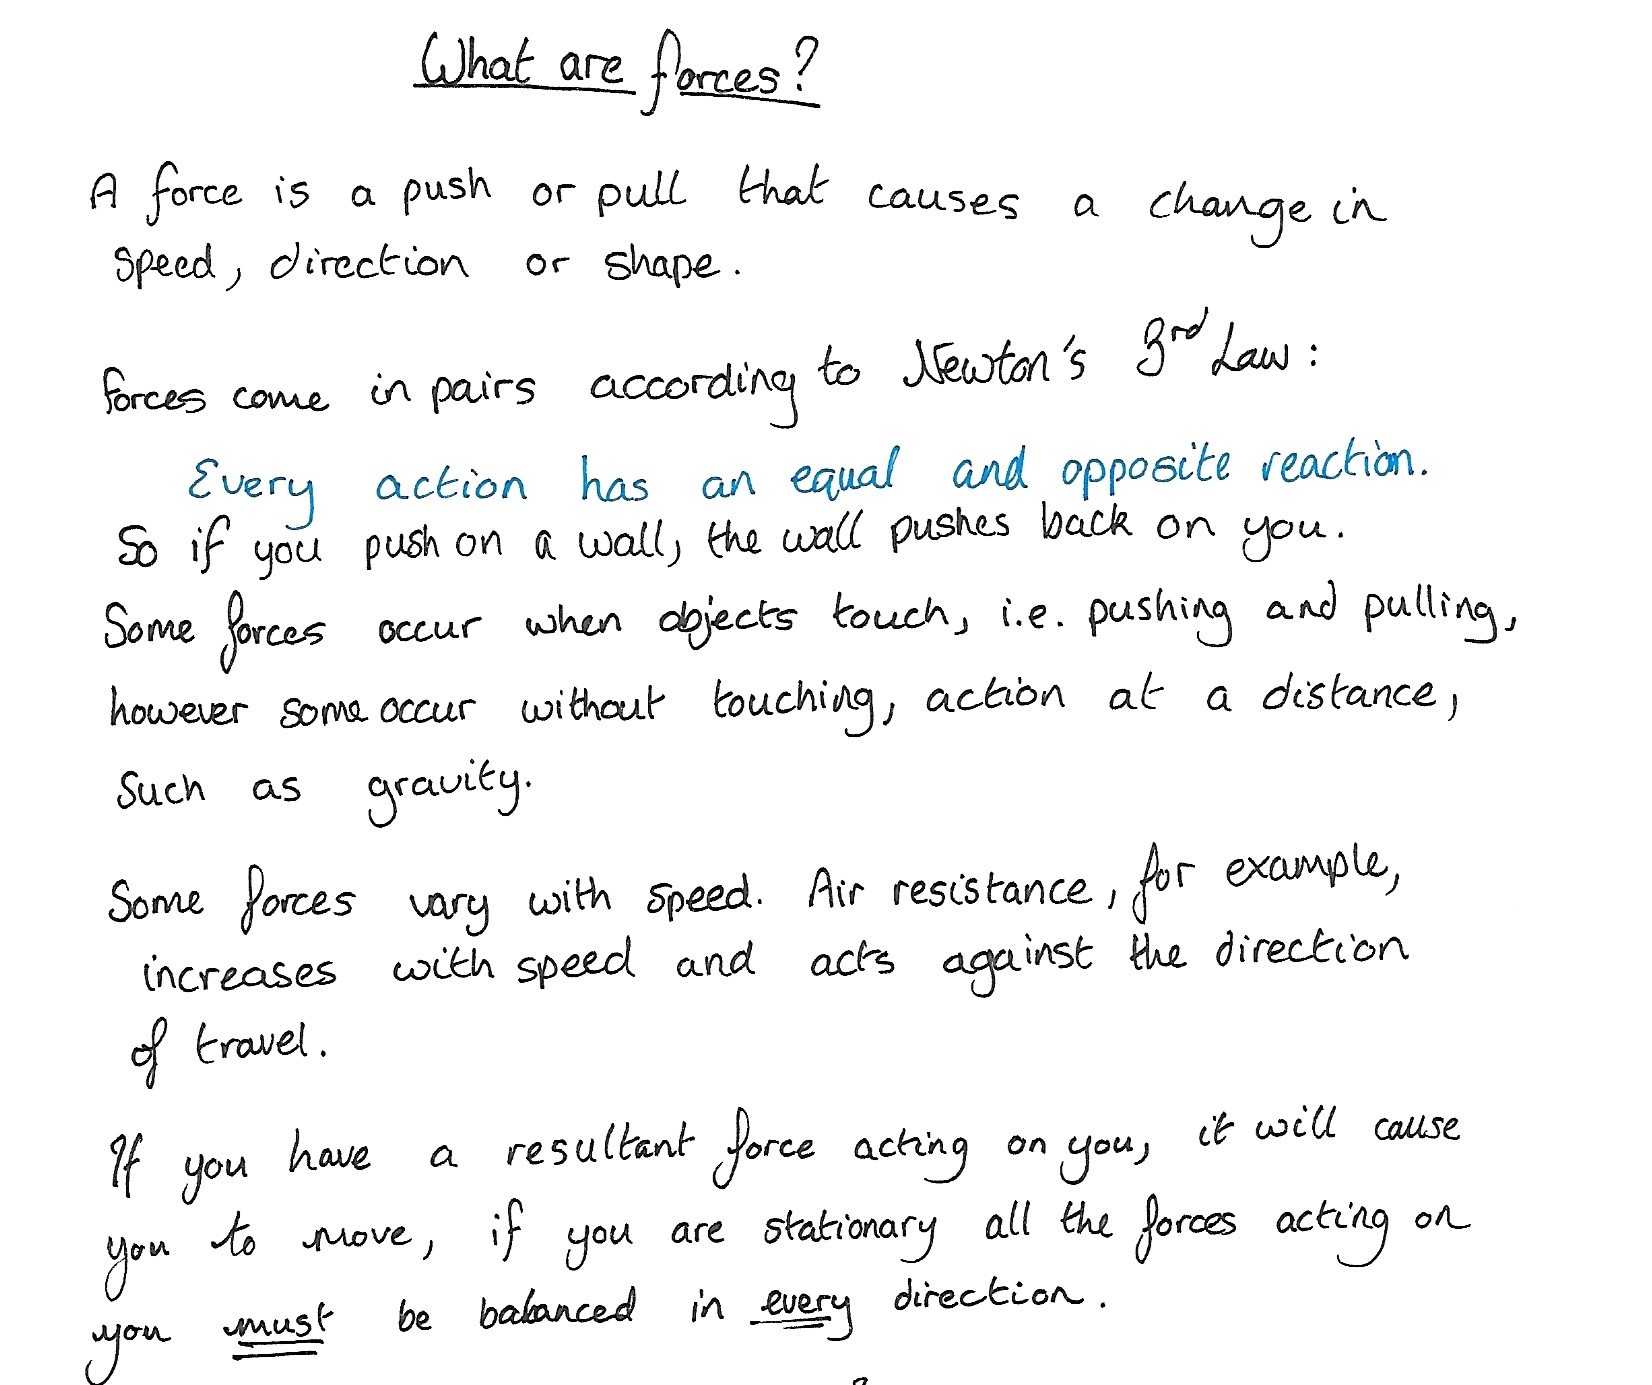 What are forces?
A force is a push or pull that causes a change in
speed, direction or shape.
Forces come in pairs according to Newton's 3rd Law:
Every action has an equal and opposite reaction.
So if you push on a wall, the wall pushes back on you.
Some forces occur when objects touch, i.e. pushing and pulling,
however some occur without touching, action at a distance,
such as gravity.
Some forces vary with speed. Air resistance, for example,
increases with speed and acts against the direction
of travel.
If you have a resultant force acting on you, it will cause
you to move, if you are stationary all the forces acting on
you must be balanced in every direction.